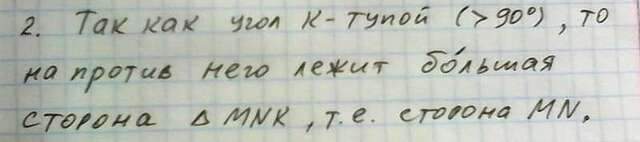 2. Так как угол К-тупой (>90°), то
на против него лежит бо́льшая
сторона △ MNK, т.е. сторона MN.